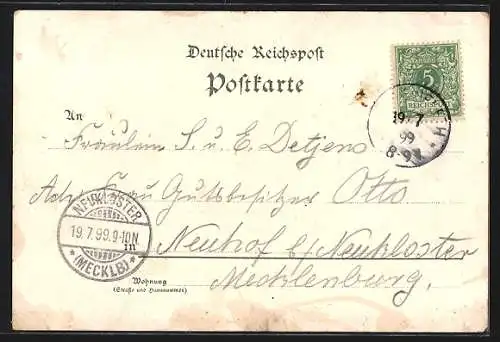 Deutsche Reichspost
Postkarte
5
REICHSPOST
19 7
99
8-9
An
Fräulein S. u. E. Detjens
Adr. Frau Gutsbesitzer Otto
NEUKLOSTER
19.7.99.9-10N
* (MECKLB) *
in Neuhof b/Neukloster
Mecklenburg.
Wohnung
(Straße und Hausnummer)